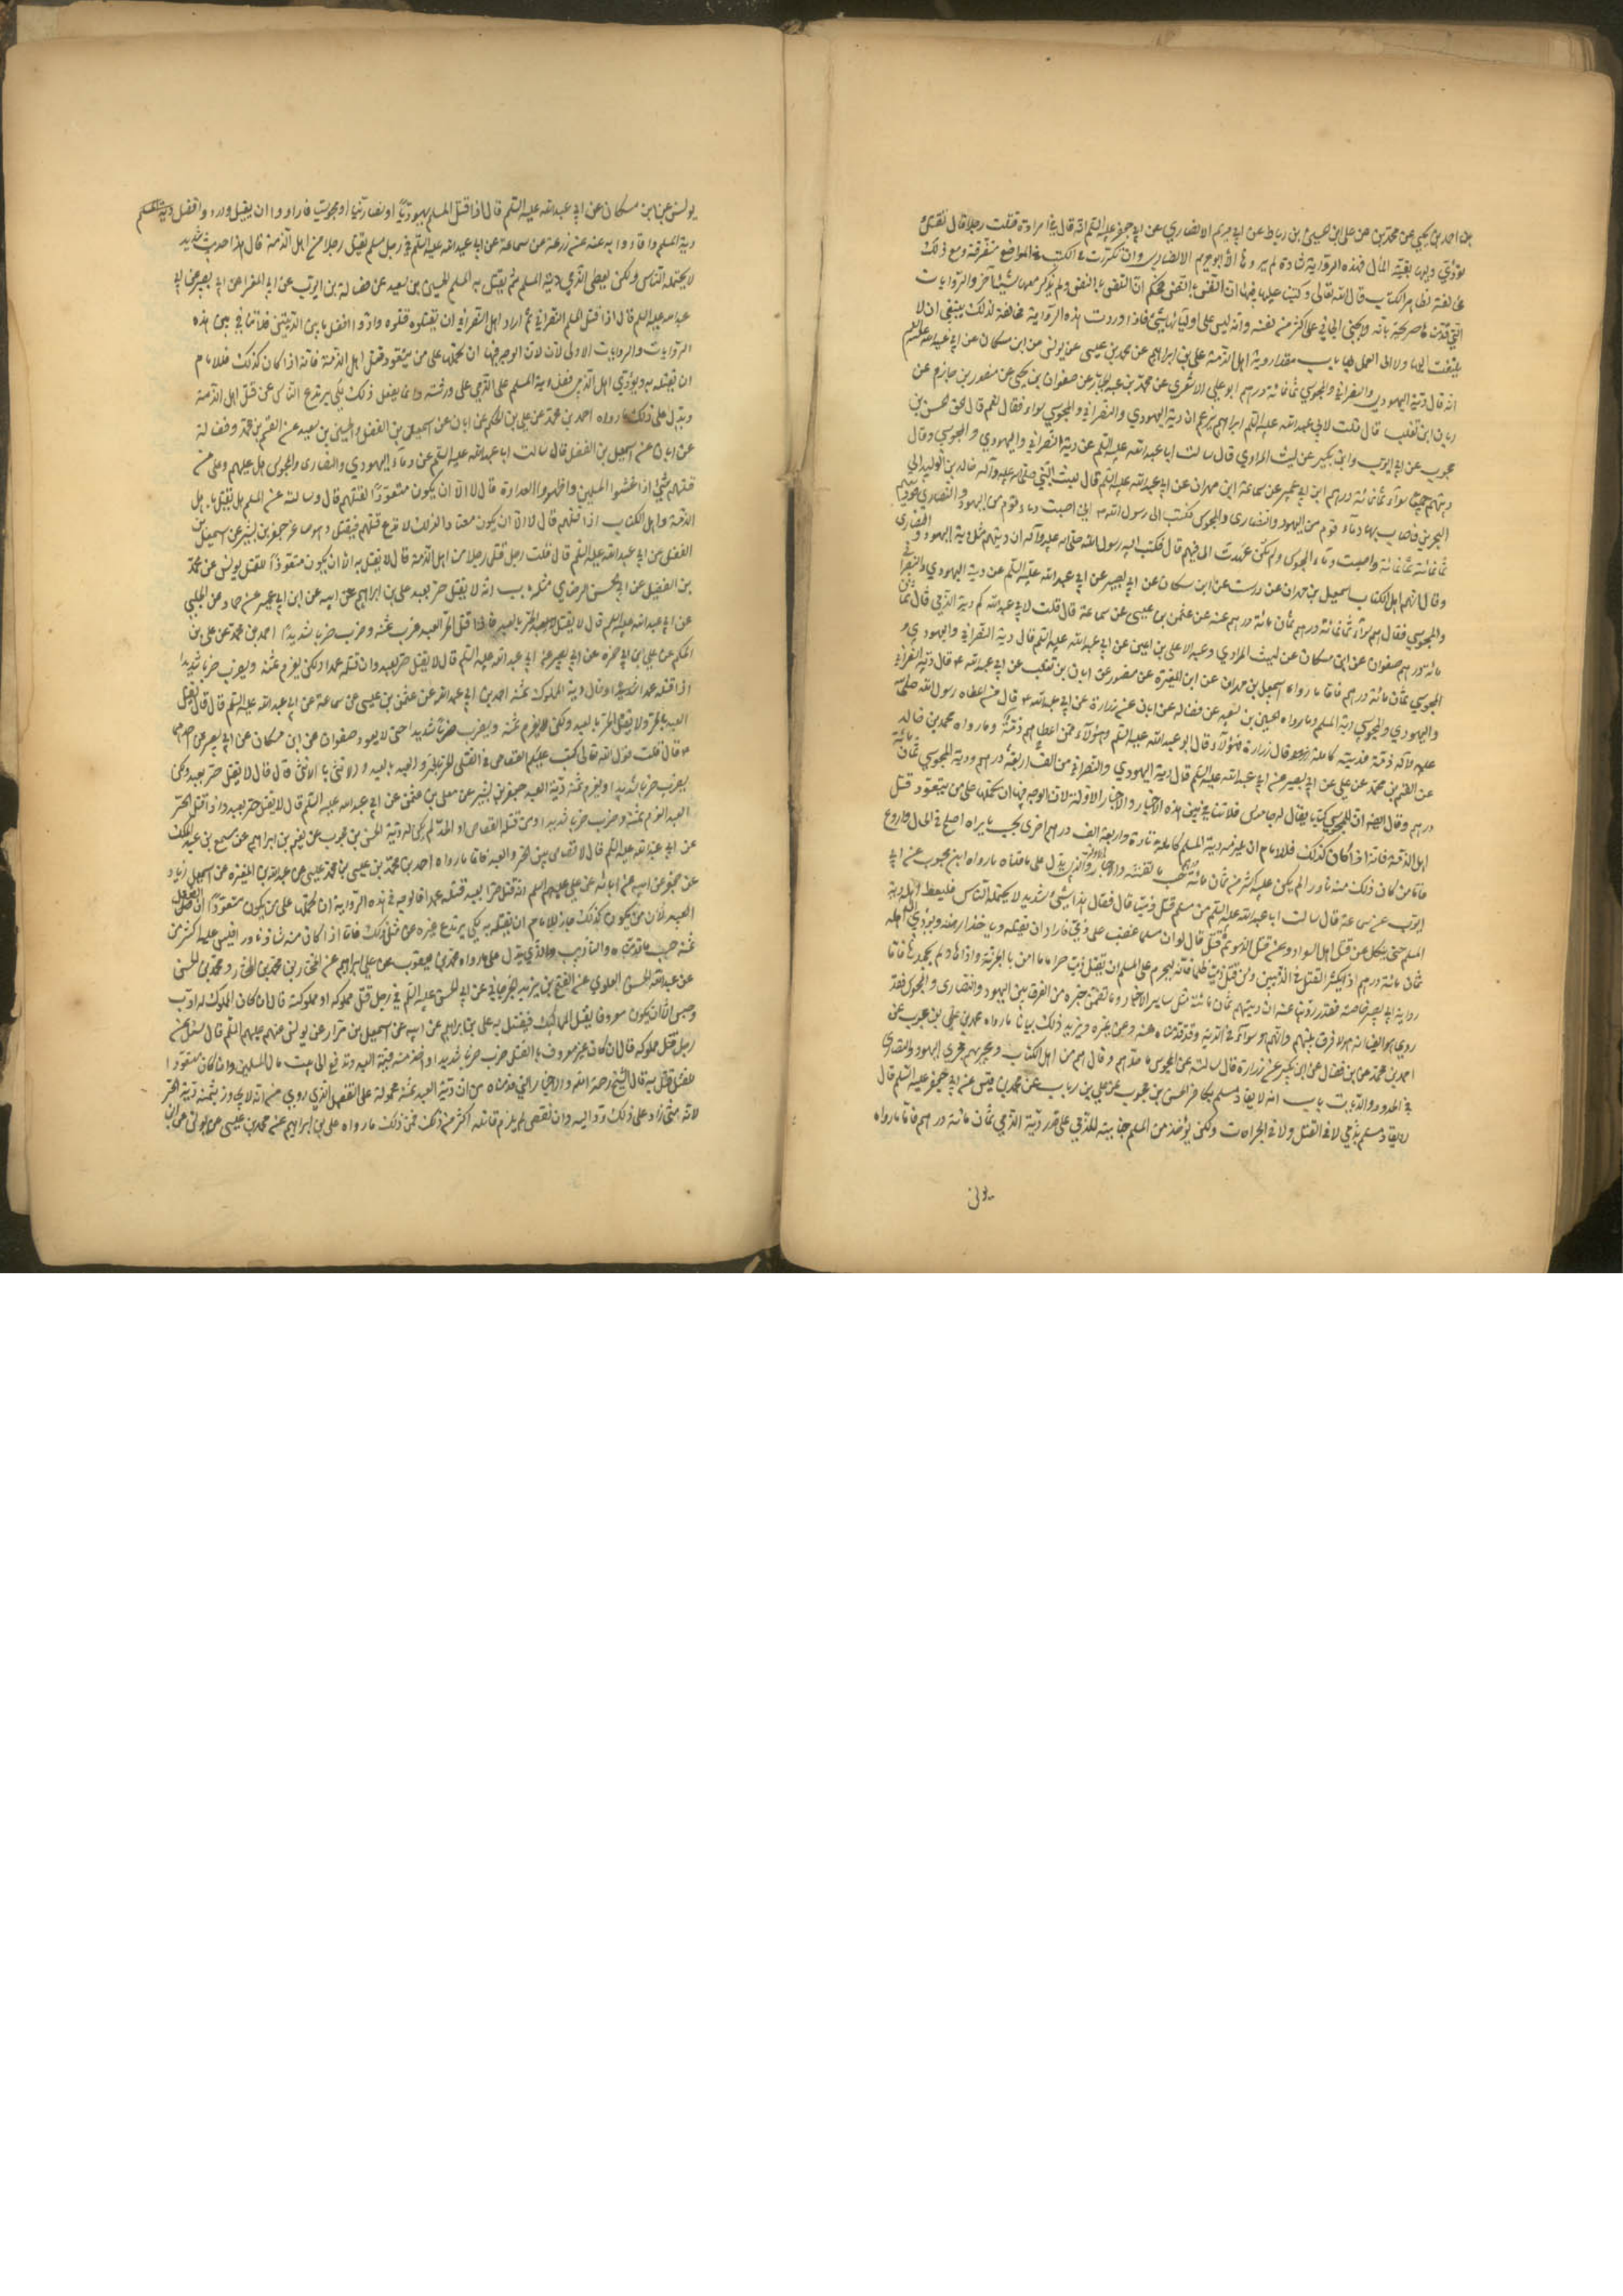 بن احمد بن يحيى عن محمد بن عن علي بن الحسين بن رباط عن ابي مريم الانصاري عن ابي جعفر عليه السلم انه قال في امراءة قتلت رجلا قال تقتل و
يؤدي وليها بقية المال فهذه الرواية شاذة لم يروها الا ابو مريم الانصاري وان تكررت في الكتب في المواضع متفرقة ومع ذلك
مخالفة لظاهر الكتاب قال الله تعالى وكتبنا عليهم فيها ان النفس بالنفس فحكم ان النفس بالنفس ولم يذكر معها شيئا آخر والروايات
التي قدمناها صريحة بانه لا يجني الجاني على اكثر من نفسه وانه ليس على اوليائها شيئ فاذا وردت هذه الرواية مخالفة لذلك ينبغي ان لا
يلتفت اليها ولا الى العمل بها باب مقدار دية اهل الذمة علي بن ابراهيم عن محمد بن عيسى عن يونس عن ابن مسكان عن ابي عبدالله عليه السلم
انه قال دية اليهودي والنصراني والمجوسي ثمانمائة درهم ابو علي الاشعري عن محمد بن عبد الجبار عن صفوان بن يحيى عن منصور بن حازم عن
ابان ابن تغلب قال قلت لابي عبدالله عليه السلم ابراهيم يزعم ان دية اليهودي والنصراني والمجوسي سواء فقال نعم قال الحق الحسن بن
محبوب عن ابي ايوب وابن بكير عن ليث المرادي قال سالت ابا عبدالله عليه السلم عن دية النصراني واليهودي والمجوسي وقال
ديتهم جميعا سوآء ثمانمائة درهم ابن ابي عمير عن سماعة ابن مهران عن ابي عبدالله عليه السلم قال بعث النبي صلى الله عليه وآله خالد بن الوليد الى
البحرين فاصاب بها دمآء قوم من اليهود والنصارى والمجوس فكتب الى رسول الله ص اني اصبت دماء قوم من اليهود والنصارى فوديتهم
ثمانمائة ثمانمائة واصبت دمآء المجوس ولم يكن عهدت الي فيهم قال فكتب اليه رسول الله صلى الله عليه وآله ان ديتهم مثل دية اليهود والنصارى
وقال انهم اهل الكتاب اسمعيل بن مهران عن درست عن ابن مسكان عن ابي بصير عن ابي عبدالله عليه السلم عن دية اليهودي والنصراني
والمجوسي فقال هم سوآء ثمانمائة درهم ثمان مائة درهم عنه عن عثمن بن عيسى عن سماعة قال قلت لابي عبدالله كم دية الذمي قال ثمان
مائة درهم صفوان عن ابن مسكان عن ليث المرادي وعبدالاعلى بن اعين عن ابي عبدالله عليه السلم قال دية النصراني واليهودي و
المجوسي ثمان مائة درهم فاما ما رواه اسمعيل بن مهران عن ابن المغيرة عن منصور عن ابان بن تغلب عن ابي عبدالله ع قال دية النصراني
واليهودي والمجوسي دية المسلم وما رواه الحسين بن سعيد عن فضالة عن ابان عن زرارة عن ابي عبدالله ع قال من اعطاه رسول الله صلى الله
عليه وآله ذمة فديته كاملة قال زرارة فهؤلآء قال ابو عبدالله عليه السلم وهؤلآء ممن اعطاهم ذمة وما رواه محمد بن خالد
عن القسم بن محمد عن علي عن ابي بصير عن ابي عبدالله عليه السلم قال دية اليهودي والنصراني من الف اربعة درهم ودية المجوسي ثمان مائة
درهم وقال ايضا ان للمجوسي كتابا يقال له جاماس فلا تنافي بين هذه الاخبار والاخبار الاولة لان الوجه فيها ان نحملها على من يتعود قتل
اهل الذمة فانه اذا كان كذلك فللامام ان يلزمه دية المسلم كاملة تارة واربعة الف درهم اخرى بحسب ما يراه اصلح في الحال واردع
فاما من كان ذلك منه نادرا لم يكن عليه اكثر من ثمان مائة درهم حسب ما تضمنته الاخبار الاولة والذي يدل على ما قلناه ما رواه ابن محبوب عن ابي
ايوب عن سماعة قال سالت ابا عبدالله عليه السلم عن مسلم قتل ذميا قال فقال هذا شيئ شديد لا يحتمله الناس فليعط اهله دية
المسلم حتى ينكل عن قتل اهل السواد وعن قتل الذمي ثم قال لو ان مسلما غضب على ذمي فاراد ان يقتله وياخذ ارضه ويؤدي الى اهله
ثمان مائة درهم اذا يكثر القتل في الذميين ومن قتل ذميا ظلما فانه ليحرم على المسلم ان يقتل ذميا حراما ما امن بالجزية واداها ولم يجحدها فاما
رواية ابي بصير خاصة فقد روينا عنه ان ديتهم ثمان مائة مثل ساير الاخبار وما تضمن خبره من الفرق بين اليهود والنصارى والمجوس فقد
روى هو ايضا انه لا فرق بينهم وانهم سوآء في الدية وقد قدمناه عنه وعن غيره ويزيد ذلك بيانا ما رواه محمد بن علي بن محبوب عن
احمد بن محمد عن ابن فضال عن ابن بكير عن زرارة قال سالته عن المجوس ما حدهم وقال هم من اهل الكتاب ومجريهم مجرى اليهود والنصارى
في الحدود والديات باب انه لا يقاد مسلم بكافر الحسن بن محبوب عن علي بن رباب عن محمد بن قيس عن ابي جعفر عليه السلم قال
لا يقاد مسلم بذمي لا في القتل ولا في الجراحات ولكن يؤخذ من المسلم جنايته للذمي على قدر دية الذمي ثمان مائة درهم فاما ما رواه
يونس
يونس عن ابن مسكان عن ابي عبدالله عليه السلم قال اذا قتل المسلم يهوديا او نصرانيا او مجوسيا فارادوا ان يقيدوا ردوا فضل دية المسلم
دية المسلم واقادوا به عنه عن زرعة عن سماعة عن ابي عبدالله عليه السلم في رجل مسلم يقتل رجلا من اهل الذمة قال هذا حديث شديد
لا يحتمله الناس ولكن يعطي الذمي دية المسلم ثم يقتل به المسلم الحسين بن سعيد عن فضالة بن ايوب عن ابي المغرا عن ابي بصير عن ابي
عبدالله عليه السلم قال اذا قتل المسلم النصراني ثم اراد اهل النصراني ان يقتلوه قتلوه وادوا فضل ما بين الديتين فلا تنافي بين هذه
الروايات والروايات الاولى لان الوجه فيها ان نحملها على من يتعود قتل اهل الذمة فانه اذا كان كذلك فللامام
ان يقتله به ويؤدي اهل الذمي فضل دية المسلم على الذمي على ورثته وانما يفعل ذلك لكي يرتدع الناس عن قتل اهل الذمة
ويدل على ذلك ما رواه احمد بن محمد عن علي بن الحكم عن ابان عن اسمعيل بن الفضل والحسين بن سعيد عن القسم بن محمد وفضالة
عن ابان عن اسمعيل بن الفضل قال سالت ابا عبدالله عليه السلم عن دمآء اليهودي والنصارى والمجوس هل عليهم وعلى من
قتلهم شئ اذا غشوا المسلمين واظهروا العداوة قال لا الا ان يكون متعودا لقتلهم قال وسالته عن المسلم هل يقتل باهل
الذمة واهل الكتاب اذا قتلهم قال لا الا ان يكون معتادا لذلك لا يدع قتلهم فيقتل وهو صاغر جعفر بن بشير عن اسمعيل بن
الفضل عن ابي عبدالله عليه السلم قال قلت رجل قتل رجلا من اهل الذمة قال لا يقتل به الا ان يكون متعودا للقتل يونس عن محمد
بن الفضيل عن ابي الحسن الرضا ع مثله باب انه لا يقتل حر بعبد علي بن ابراهيم عن ابيه عن ابن ابي عمير عن حماد عن الحلبي
عن ابي عبدالله عليه السلم قال لا يقتل الحر بالعبد فاذا قتل الحر العبد غرم ثمنه وضرب ضربا شديدا احمد بن محمد عن علي بن
الحكم عن علي ابن ابي حمزه عن ابي بصير عن ابي عبدالله عليه السلم قال لا يقتل حر بعبد وان قتله عمدا ولكن يغرم ثمنه ويضرب ضربا شديدا
اذا قتله عمدا وقال دية المملوك ثمنه احمد بن ابي عبدالله عن عثمن بن عيسى عن سماعة عن ابي عبدالله عليه السلم قال قال يقتل
العبد بالحر ولا يقتل الحر بالعبد ولكن يغرم ثمنه ويضرب ضربا شديدا حتى لا يعود صفوان عن ابن مسكان عن ابي بصير عن احدهما
ع قال قلت قول الله تعالى كتب عليكم القصاص في القتلى الحر بالحر والعبد بالعبد والانثى بالانثى قال قال لا يقتل حر بعبد ولكن
يضرب ضربا شديدا ويغرم ثمنه دية العبد جعفر بن بشير عن معلى بن عثمن عن ابي عبدالله عليه السلم قال لا يقتل حر بعبد واذا قتل الحر
العبد غرم ثمنه وضرب ضربا شديدا ومن قتله القصاص او الحد لم يكن له دية الحسن بن محبوب عن نعيم بن ابراهيم عن مسمع بن عبد الملك
عن ابي عبدالله عليه السلم قال لا قصاص بين الحر والعبد فاما ما رواه احمد بن محمد بن عيسى بن محمد عيسى عن عبدالله بن المغيرة عن اسمعيل بن ابي زياد
عن جعفر عن ابيه عن ابائه عن علي عليهم السلم انه قتل حرا بعبد قتله عمدا فالوجه في هذه الرواية ان نحملها على من يكون متعودا لقتل
العبيد لان من يكون كذلك جاز للامام ان يقتله به لكي يرتدع غيره عن مثل ذلك فاما اذا كان منه شاذ نادر فليس عليه اكثر من
ثمنه حسب ما قدمناه والتاديب والذي يدل على ما رواه محمد بن يعقوب عن علي ابراهيم عن المختار بن محمد بن المختار ومحمد بن الحسن
عن عبدالله بن الحسن العلوي عن الفتح بن يزيد الجرجاني عن ابي الحسن عليه السلم في رجل قتل مملوكه او مملوكته قال ان كان المملوك له ادب
وحبس الا ان يكون معروفا بقتل المماليك فيقتل به علي بن ابراهيم عن ابيه عن اسمعيل بن مرار عن يونس عنهم عليهم السلم قال سئل عن
رجل قتل مملوكه قال ان كان غير معروف بالقتل ضرب ضربا شديدا واخذ منه قيمة العبد وتدفع الى بيت مال المسلمين وان كان متعودا
للقتل قتل به قال الشيخ رحمه الله والاخبار التي قدمناه من ان دية العبد ثمنه محمولة على التفصيل الذي روي من انه لا يجاوز بثمنه دية الحر
لانه متى زاد على ذلك رد اليه وان نقص لم يلزم قاتله اكثر من ذلك فمن ذلك ما رواه علي بن ابراهيم عن محمد بن عيسى عن يونس عن ابن